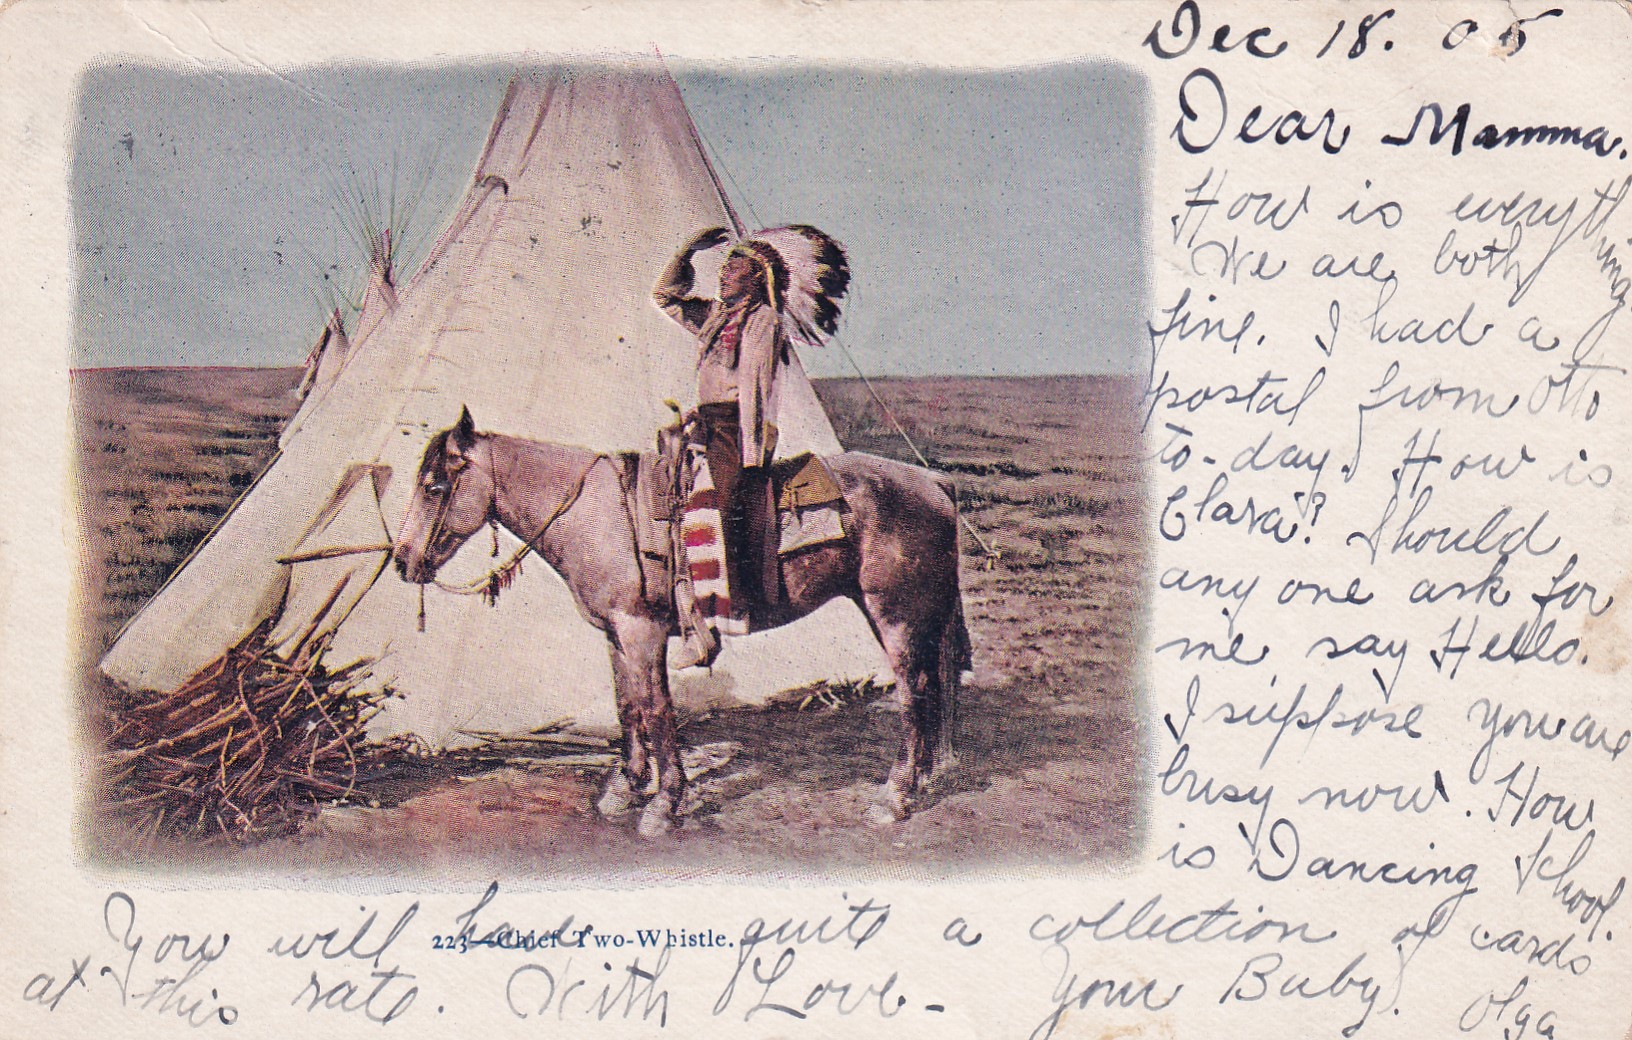 Dec 18. 05
Dear Mamma.
How is everything
We are both
fine. I had a
postal from Otto
to-day. How is
Clara? Should
any one ask for
me say Hello.
I suppose you are
busy now. How
is Dancing School.
You will have quite a collection of cards
223—Chief Two-Whistle.
at this rate. With Love - Your Baby.
Olga